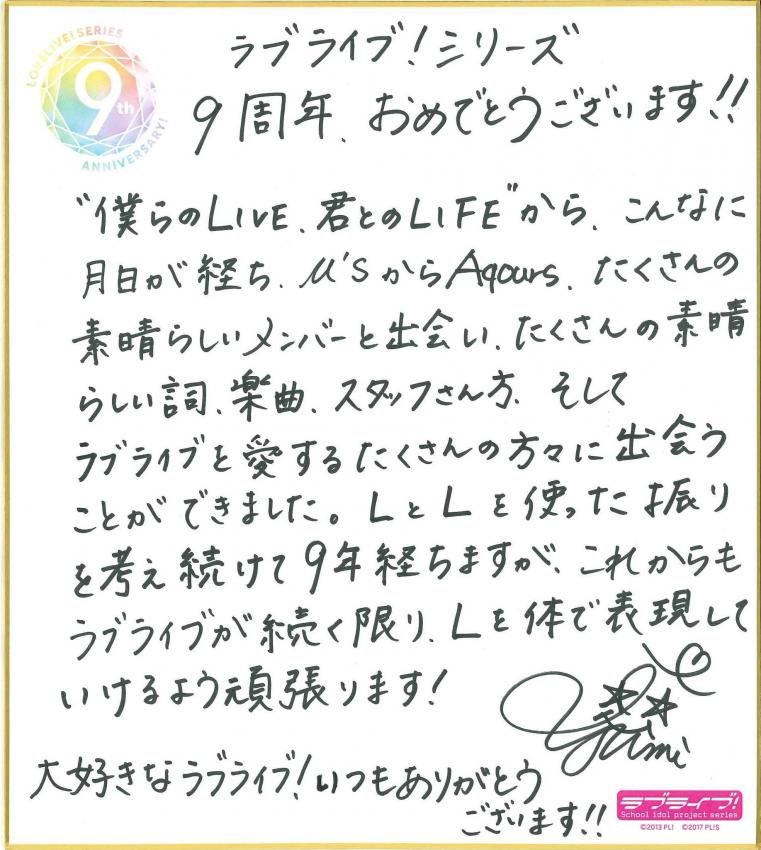 LOVELIVE! SERIES
9th
ANNIVERSARY!
ラブライブ！シリーズ
9周年、おめでとうございます!!
"僕らのLIVE、君とのLIFE"から、こんなに
月日が経ち、μ'sからAqours、たくさんの
素晴らしいメンバーと出会い、たくさんの素晴
らしい詞、楽曲、スタッフさん方、そして
ラブライブを愛するたくさんの方々に出会う
ことができました。LとLを使った振り
を考え続けて9年経ちますが、これからも
ラブライブが続く限り、Lを体で表現して
いけるよう頑張ります！
大好きなラブライブ！いつもありがとう
ございます!!
ラブライブ!
School idol project series
©2013 PL! ©2017 PL!S